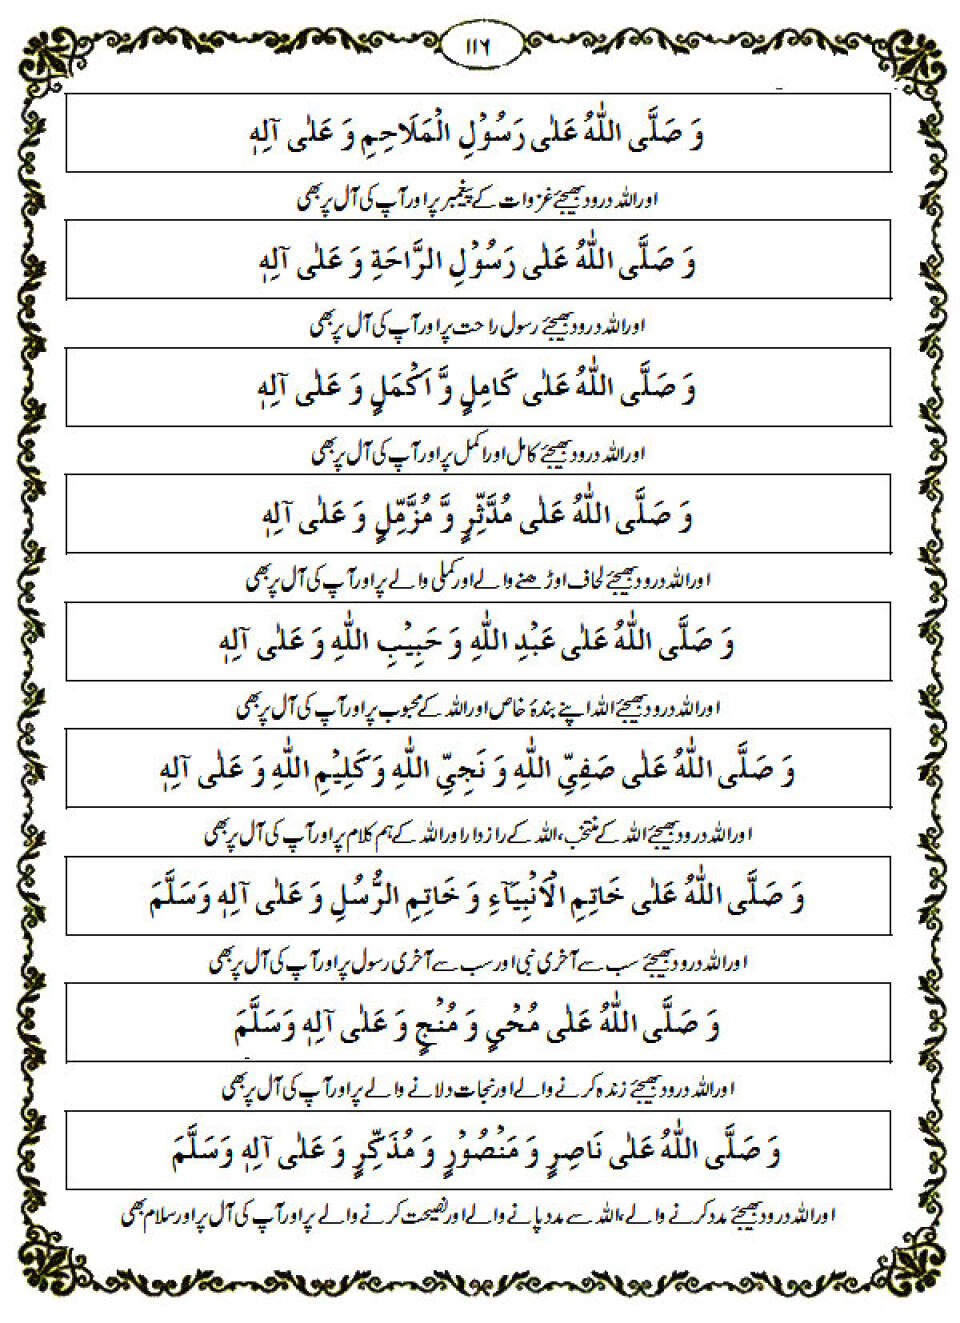 ١١٦
وَ صَلَّى اللّٰهُ عَلٰى رَسُوْلِ الْمَلَاحِمِ وَ عَلٰى آلِهٖ
اور اللہ درود بھیجئے غزوات کے پیغمبر پر اور آپ کی آل پر بھی
وَ صَلَّى اللّٰهُ عَلٰى رَسُوْلِ الرَّاحَةِ وَ عَلٰى آلِهٖ
اور اللہ درود بھیجئے رسول راحت پر اور آپ کی آل پر بھی
وَ صَلَّى اللّٰهُ عَلٰى كَامِلٍ وَّ اَكْمَلٍ وَ عَلٰى آلِهٖ
اور اللہ درود بھیجئے کامل اور اکمل پر اور آپ کی آل پر بھی
وَ صَلَّى اللّٰهُ عَلٰى مُدَّثِّرٍ وَّ مُزَّمِّلٍ وَ عَلٰى آلِهٖ
اور اللہ درود بھیجئے لحاف اوڑھنے والے اور کملی والے پر اور آپ کی آل پر بھی
وَ صَلَّى اللّٰهُ عَلٰى عَبْدِ اللّٰهِ وَ حَبِيْبِ اللّٰهِ وَ عَلٰى آلِهٖ
اور اللہ درود بھیجئے اللہ اپنے بندۂ خاص اور اللہ کے محبوب پر اور آپ کی آل پر بھی
وَ صَلَّى اللّٰهُ عَلٰى صَفِيِّ اللّٰهِ وَ نَجِيِّ اللّٰهِ وَ كَلِيْمِ اللّٰهِ وَ عَلٰى آلِهٖ
اور اللہ درود بھیجئے اللہ کے منتخب، اللہ کے رازدار اور اللہ کے ہم کلام پر اور آپ کی آل پر بھی
وَ صَلَّى اللّٰهُ عَلٰى خَاتِمِ الْاَنْبِيَآءِ وَ خَاتِمِ الرُّسُلِ وَ عَلٰى آلِهٖ وَسَلَّمَ
اور اللہ درود بھیجئے سب سے آخری نبی اور سب سے آخری رسول پر اور آپ کی آل پر بھی
وَ صَلَّى اللّٰهُ عَلٰى مُحْيٍ وَ مُنْجٍ وَ عَلٰى آلِهٖ وَسَلَّمَ
اور اللہ درود بھیجئے زندہ کرنے والے اور نجات دلانے والے پر اور آپ کی آل پر بھی
وَ صَلَّى اللّٰهُ عَلٰى نَاصِرٍ وَ مَنْصُوْرٍ وَ مُذَكِّرٍ وَ عَلٰى آلِهٖ وَسَلَّمَ
اور اللہ درود بھیجئے مدد کرنے والے، اللہ سے مدد پانے والے اور نصیحت کرنے والے پر اور آپ کی آل پر اور سلام بھی